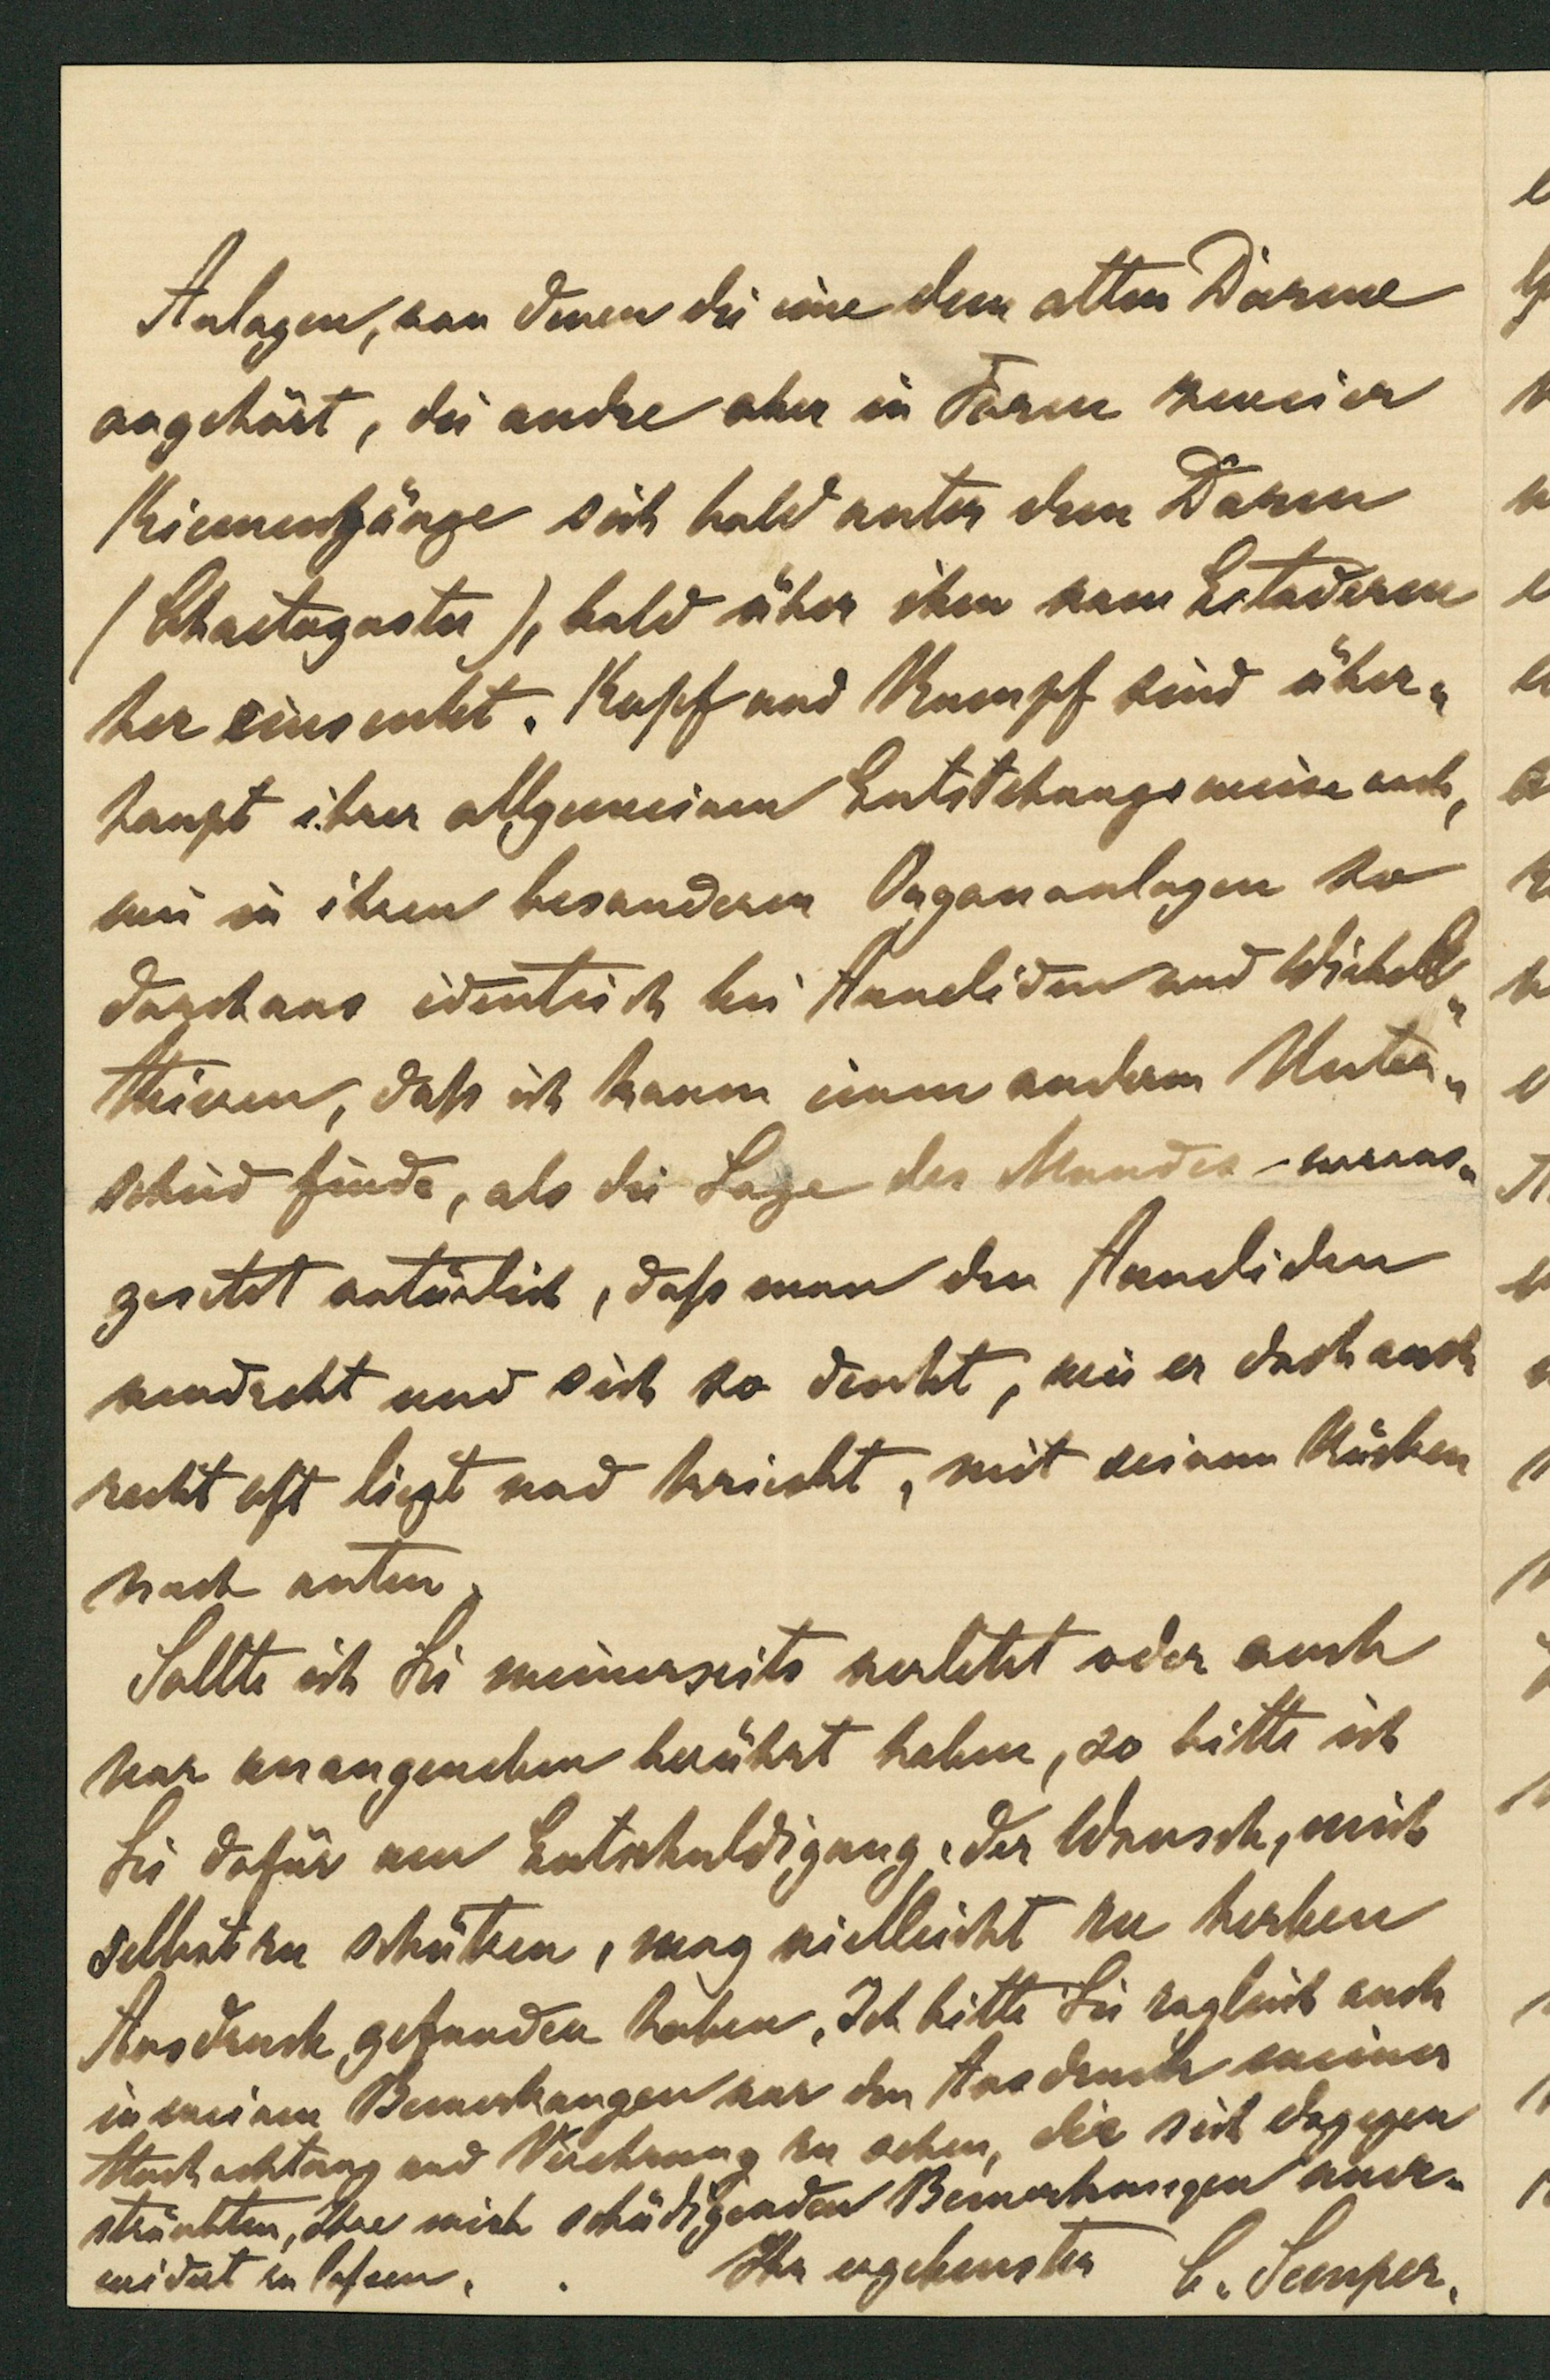 Anlagen, von denen die eine dem alten Darme
angehört, die andre aber in Form zweier
Kiemengänge sich bald unter dem Darm
(Chaetogaster), bald über ihm vom Ectoderm
her einsenkt. Kopf und Rumpf sind über-
haupt ihrer allgemeinen Entstehungsweise nach,
wie in ihren besonderen Organanlagen so
durchaus identisch bei Anneliden und Wirbel-
thieren, daß ich kaum einen andern Unter-
schied finde, als die Lage des Mundes – voraus-
gesetzt natürlich, daß man den Anneliden
umdreht und sich so denkt, wie er doch auch
recht oft liegt und kriecht, mit seinem Rücken
nach unten.
Sollte ich Sie meinerseits verletzt oder auch
nur unangenehm berührt haben, so bitte ich
Sie dafür um Entschuldigung; der Wunsch, mich
selbst zu schützen, mag vielleicht zu herben
Ausdruck gefunden haben. Ich bitte Sie zugleich auch
in meinen Bemerkungen nur den Ausdruck meiner
Hochachtung und Verehrung zu sehen, die sich dagegen
sträubten, Ihre mich schädigenden Bemerkungen uner-
widert zu lassen.
Ihr ergebenster C. Semper.